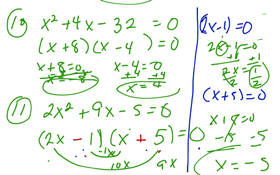 10) x² + 4x - 32 = 0
(x + 8)(x - 4) = 0
x + 8 = 0 x - 4 = 0
+4 +4
x = 4
11) 2x² + 9x - 5 = 0
(2x - 1)(x + 5) = 0
-1x
10x 9x
(2x - 1) = 0
+1 +1
2x = 1
2 2
(x + 5) = 0
-5 -5
x = -5